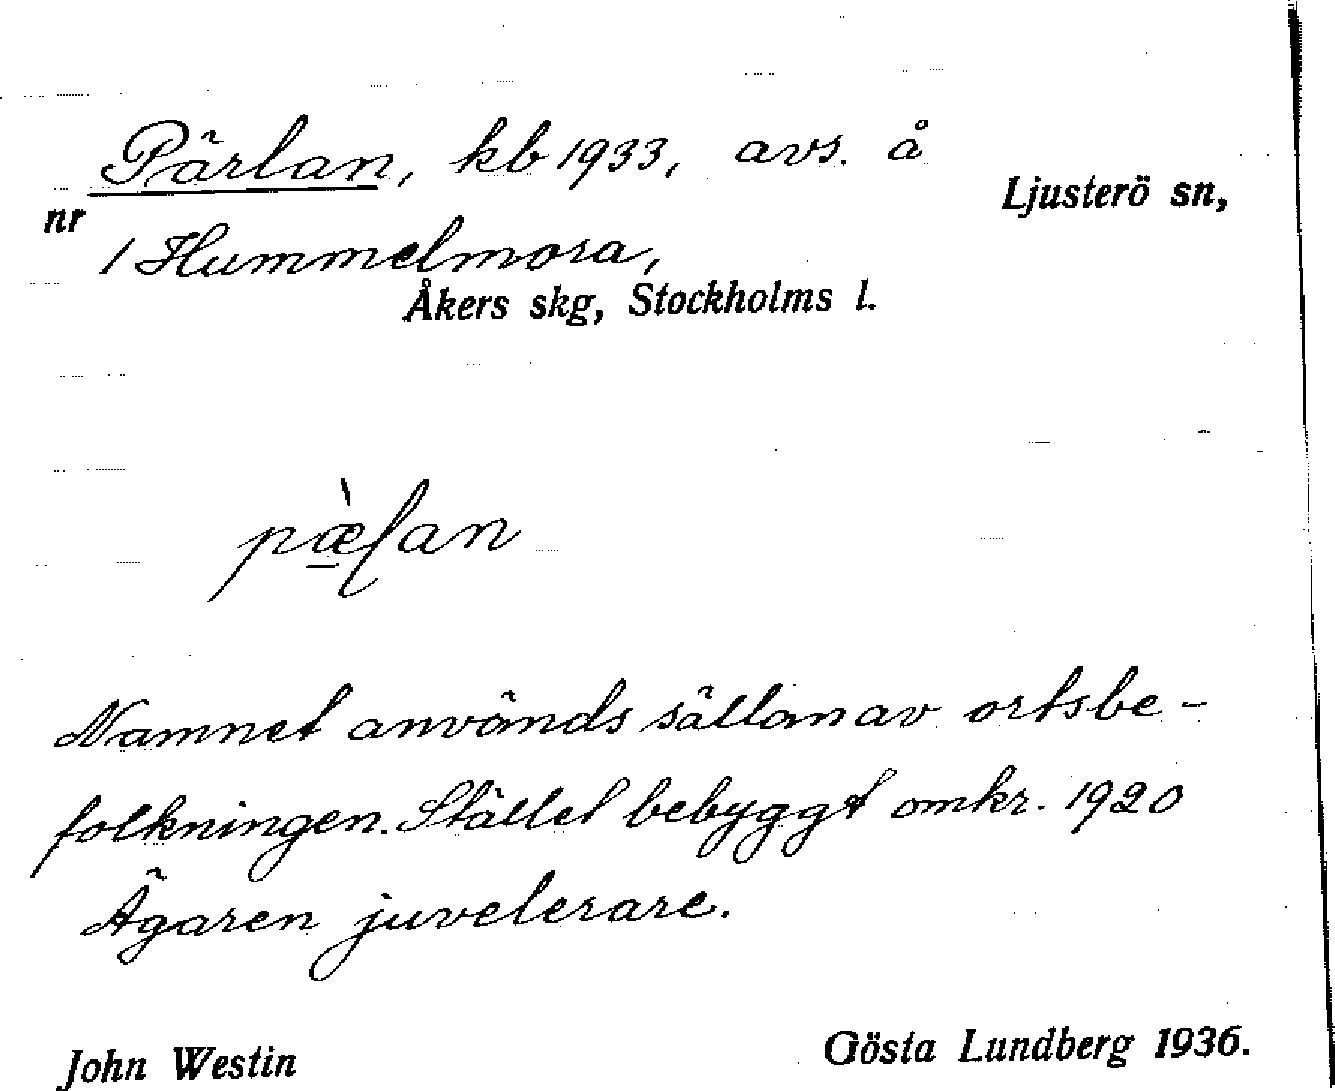 Pärlan, kb 1933, avs. å
Ljusterö sn,
nr
1 Hummelmora,
Åkers skg, Stockholms l.
Namnet används sällan av ortsbe-
folkningen. Stället bebyggt omkr. 1920
Ägaren juvelerare.
John Westin
Gösta Lundberg 1936.